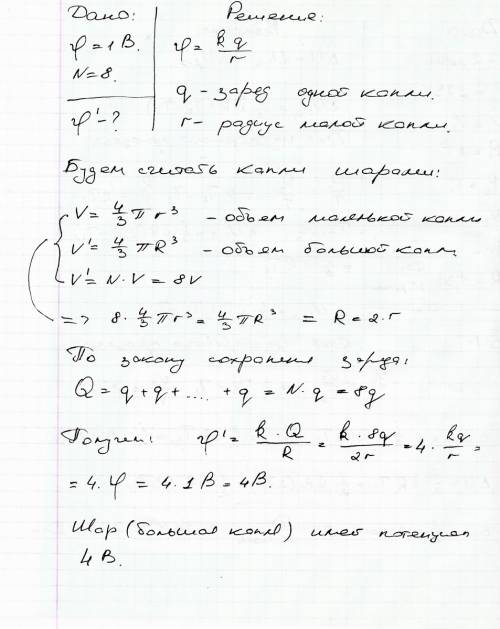 Дано:
φ = 1 В.
N = 8.
φ' - ?
Решение:
φ = kq/r
q - заряд одной капли.
r - радиус малой капли.
Будем считать капли шарами:
V = 4/3 π r³ - объем маленькой капли
V' = 4/3 π R³ - объем большой капл.
V' = N · V = 8V
=> 8 · 4/3 π r³ = 4/3 π R³ = R = 2 · r
По закону сохранения заряда:
Q = q + q + .... + q = N · q = 8q
Получим: φ' = k · Q/R = k · 8q/2r = 4 · kq/r =
= 4 · φ = 4 · 1 В = 4 В.
Шар (большая капля) имеет потенциал
4 В.